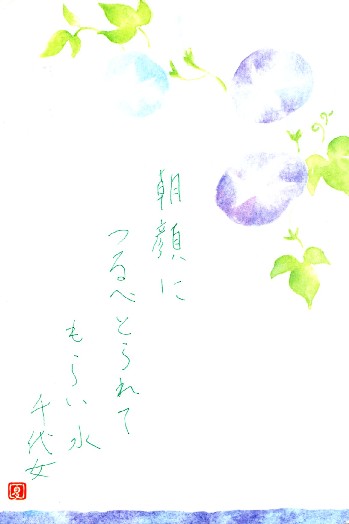 朝顔に
つるべとられて
もらい水
千代女
夏